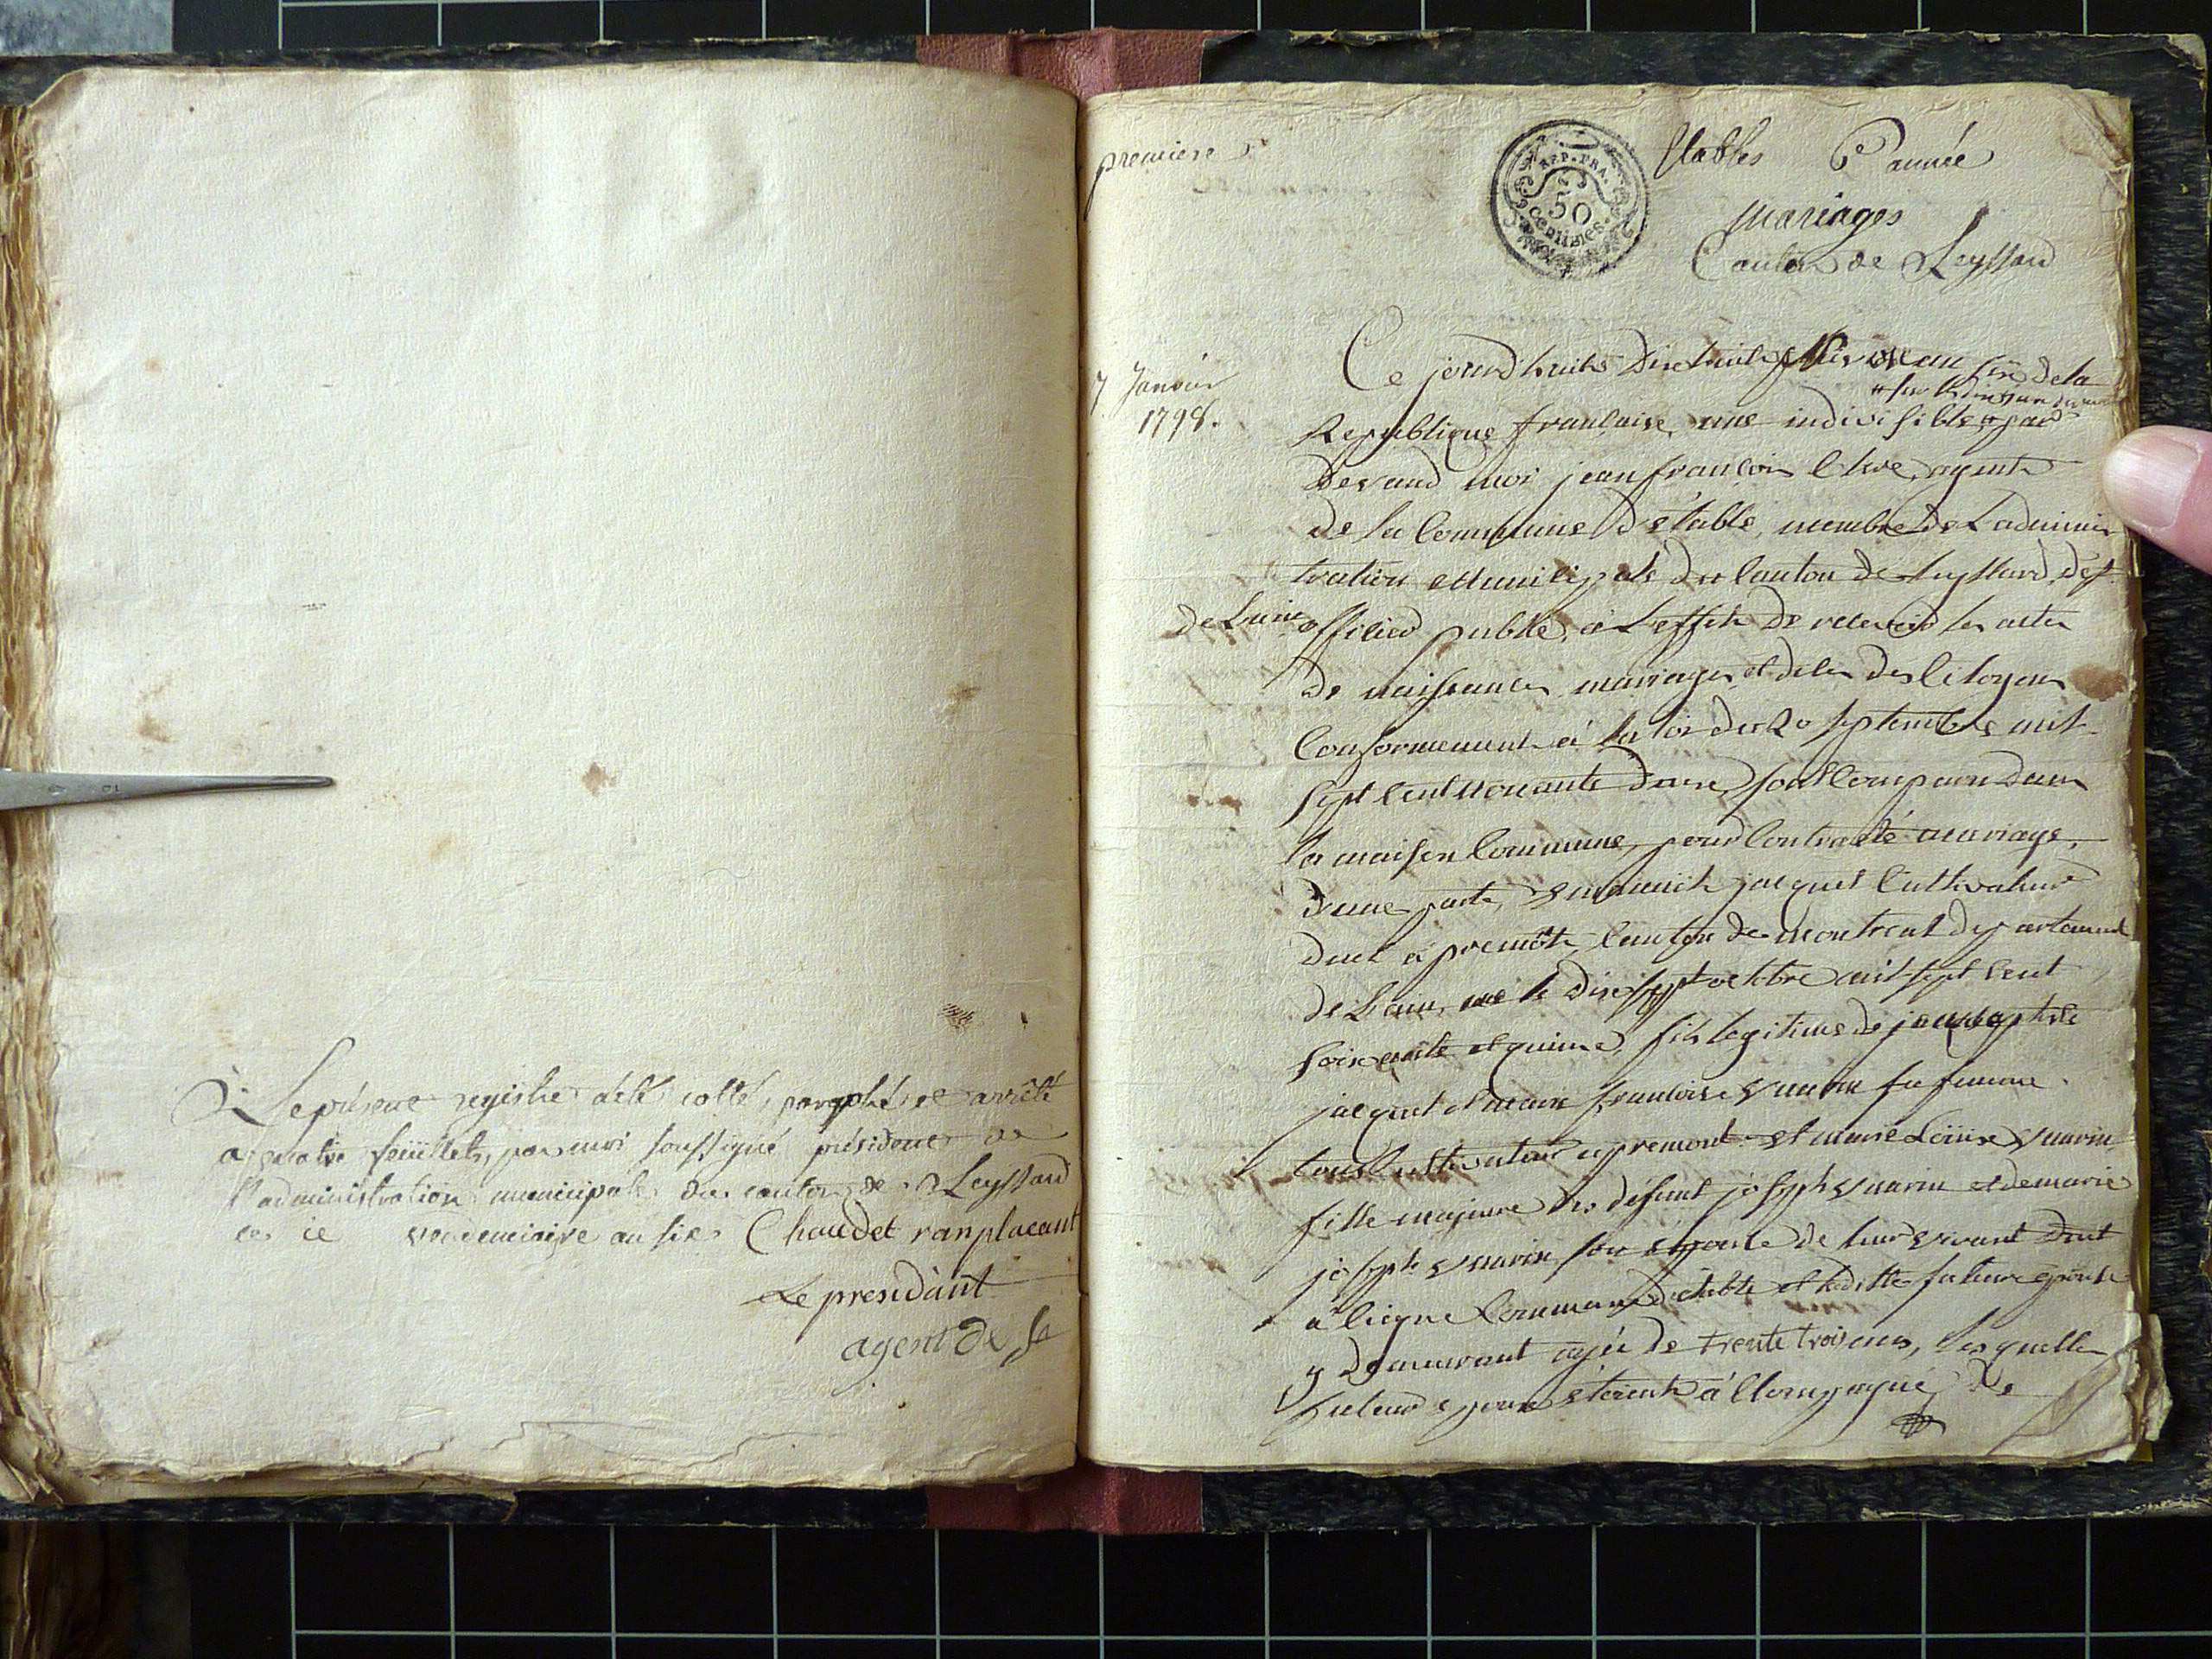 Le présent registre a été cotté, paraphé et arrêté
a quatre feuillets, par moi soussigné président de
l'administration municipale du canton de Leyssard
ce vendemiaire an six Chaudet ranplacant
Le presidant
agent de
premiere
REP. FRA.
50
centimes
Etables 6e année
Mariages
Canton de Leyssard
7 Janvier
1798.
Ce jourd'huits dix huit nivose an six de la
Republique francaise, une indivisible, par
devand moi jean francois agent
de la Commune d'Etable, membre de Ladminis
tration Municipale du Canton de Leyssard, dep.t
de Lain officier public, à Leffet de recevoir les actes
de naissances mariages et deces des Citoyens
Conformement à la loi du 20 septembre mil
sept Cent nonante deux, sont Comparu dans
la maison Commune, pour Contracté mariage,
d'une part, jacquet Cultivateur
à premont, Canton de montreal departement
de Lain, né le dix sept octobre mil sept Cent
soixante et quinze, fils legitime de jean baptiste
jacquet et marie francoise sa femme
tous Cultivateur a premont et marie Louise
fille majeure de défunt joseph et de marie
joseph son épouse de leur vivant
a Commune d'étable et laditte future epouse
y demeurant agée de trente trois ans, lesquelles
futurs epoux étoient accompagné de